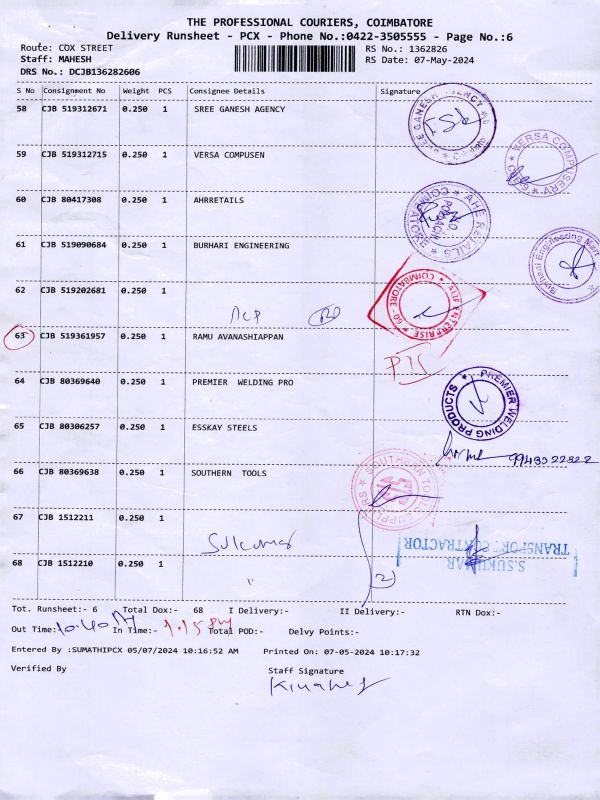 THE PROFESSIONAL COURIERS, COIMBATORE
Delivery Runsheet - PCX - Phone No.:0422-3505555 - Page No.:6
Route: COX STREET RS No.: 1362826
Staff: MAHESH RS Date: 07-May-2024
DRS No.: DCJB136282606
S No Consignment No Weight PCS Consignee Details Signature
58 CJB 519312671 0.250 1 SREE GANESH AGENCY
59 CJB 519312715 0.250 1 VERSA COMPUSEN
VERSA COMPUSERV
60 CJB 80417308 0.250 1 AHRRETAILS
COIMBATORE
61 CJB 519090684 0.250 1 BURHARI ENGINEERING
Engineering Mart
62 CJB 519202681 0.250 1
COIMBATORE - 60
ENTERPRISE
63 CJB 519361957 0.250 1 RAMU AVANASHIAPPAN
64 CJB 80369640 0.250 1 PREMIER WELDING PRO
PREMIER WELDING PRODUCTS
65 CJB 80306257 0.250 1 ESSKAY STEELS
66 CJB 80369638 0.250 1 SOUTHERN TOOLS
SOUTHERN TOOL SUPPLIERS
67 CJB 1512211 0.250 1
Sukumar
S.SUKUMAR
TRANSPORT CONTRACTOR
68 CJB 1512210 0.250 1
" 2
Tot. Runsheet:- 6 Total Dox:- 68 I Delivery:- II Delivery:- RTN Dox:-
Out Time:10.40 In Time:- 1.15 PM Total POD:- Delvy Points:-
Entered By :SUMATHIPCX 05/07/2024 10:16:52 AM Printed On: 07-05-2024 10:17:32
Verified By Staff Signature